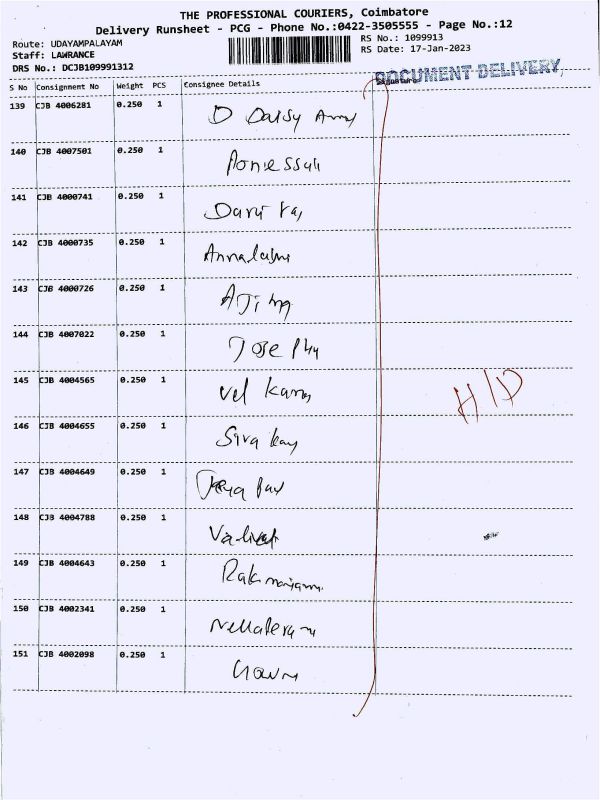 THE PROFESSIONAL COURIERS, Coimbatore
Delivery Runsheet - PCG - Phone No.:0422-3505555 - Page No.:12
Route: UDAYAMPALAYAM
Staff: LAWRANCE
DRS No.: DCJB109991312
RS No.: 1099913
RS Date: 17-Jan-2023
S No Consignment No Weight PCS Consignee Details Signature
DOCUMENT DELIVERY
139 CJB 4006281 0.250 1 D Daisy
140 CJB 4007501 0.250 1
141 CJB 4000741 0.250 1
142 CJB 4000735 0.250 1
143 CJB 4000726 0.250 1
144 CJB 4007022 0.250 1
145 CJB 4004565 0.250 1 Vel
H/D
146 CJB 4004655 0.250 1
147 CJB 4004649 0.250 1
148 CJB 4004788 0.250 1
149 CJB 4004643 0.250 1
150 CJB 4002341 0.250 1
151 CJB 4002098 0.250 1